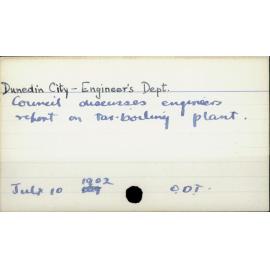 Dunedin City - Engineer's Dept.
Council discusses engineers
report on tar-boiling plant.
1902
July 10 O.D.T.